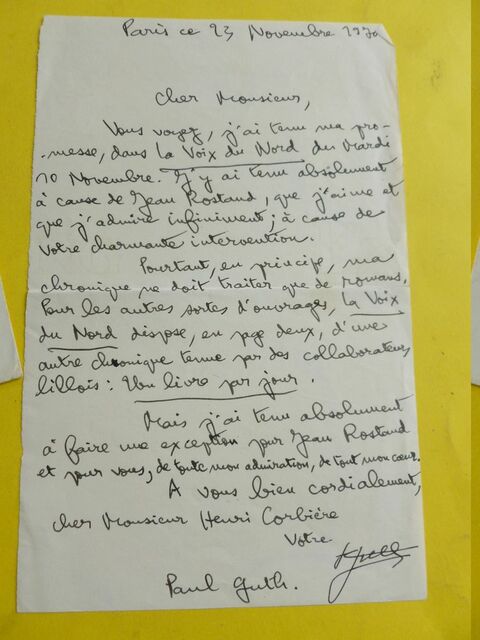 Paris ce 23 Novembre 1970
Cher Monsieur,
Vous voyez, j'ai tenu ma pro-
-messe, dans la Voix du Nord du Mardi
10 Novembre. J'y ai tenu absolument
à cause de Jean Rostand, que j'aime et
que j'admire infiniment; à cause de
votre charmante intervention.
Pourtant, en principe, ma
chronique ne doit traiter que de romans.
Pour les autres sortes d'ouvrages, la Voix
du Nord dispose, en page deux, d'une
autre chronique tenue par des collaborateurs
lillois: Un livre par jour.
Mais j'ai tenu absolument
à faire une exception pour Jean Rostand
et pour vous, de toute mon admiration, de tout mon cœur.
A vous bien cordialement,
cher Monsieur Henri Corbière
Votre
Paul Guth.